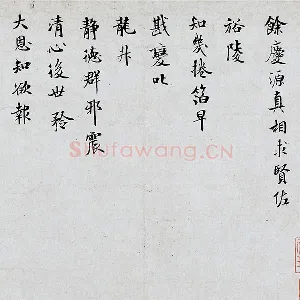 餘慶源真相求賢佐
裕陵
知幾捲箔早
戡㝠叱
龍升
静德群邪震
清心後世矜
大恩知欲報
Shufawang.cn